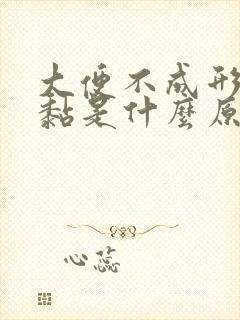 大便不成形
黏是什麼原
心蕊